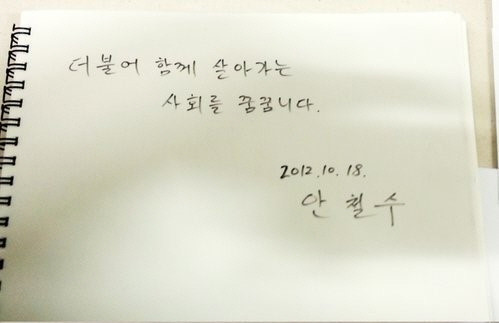 더불어 함께 살아가는
사회를 꿈꿉니다.
2012.10.18.
안철수